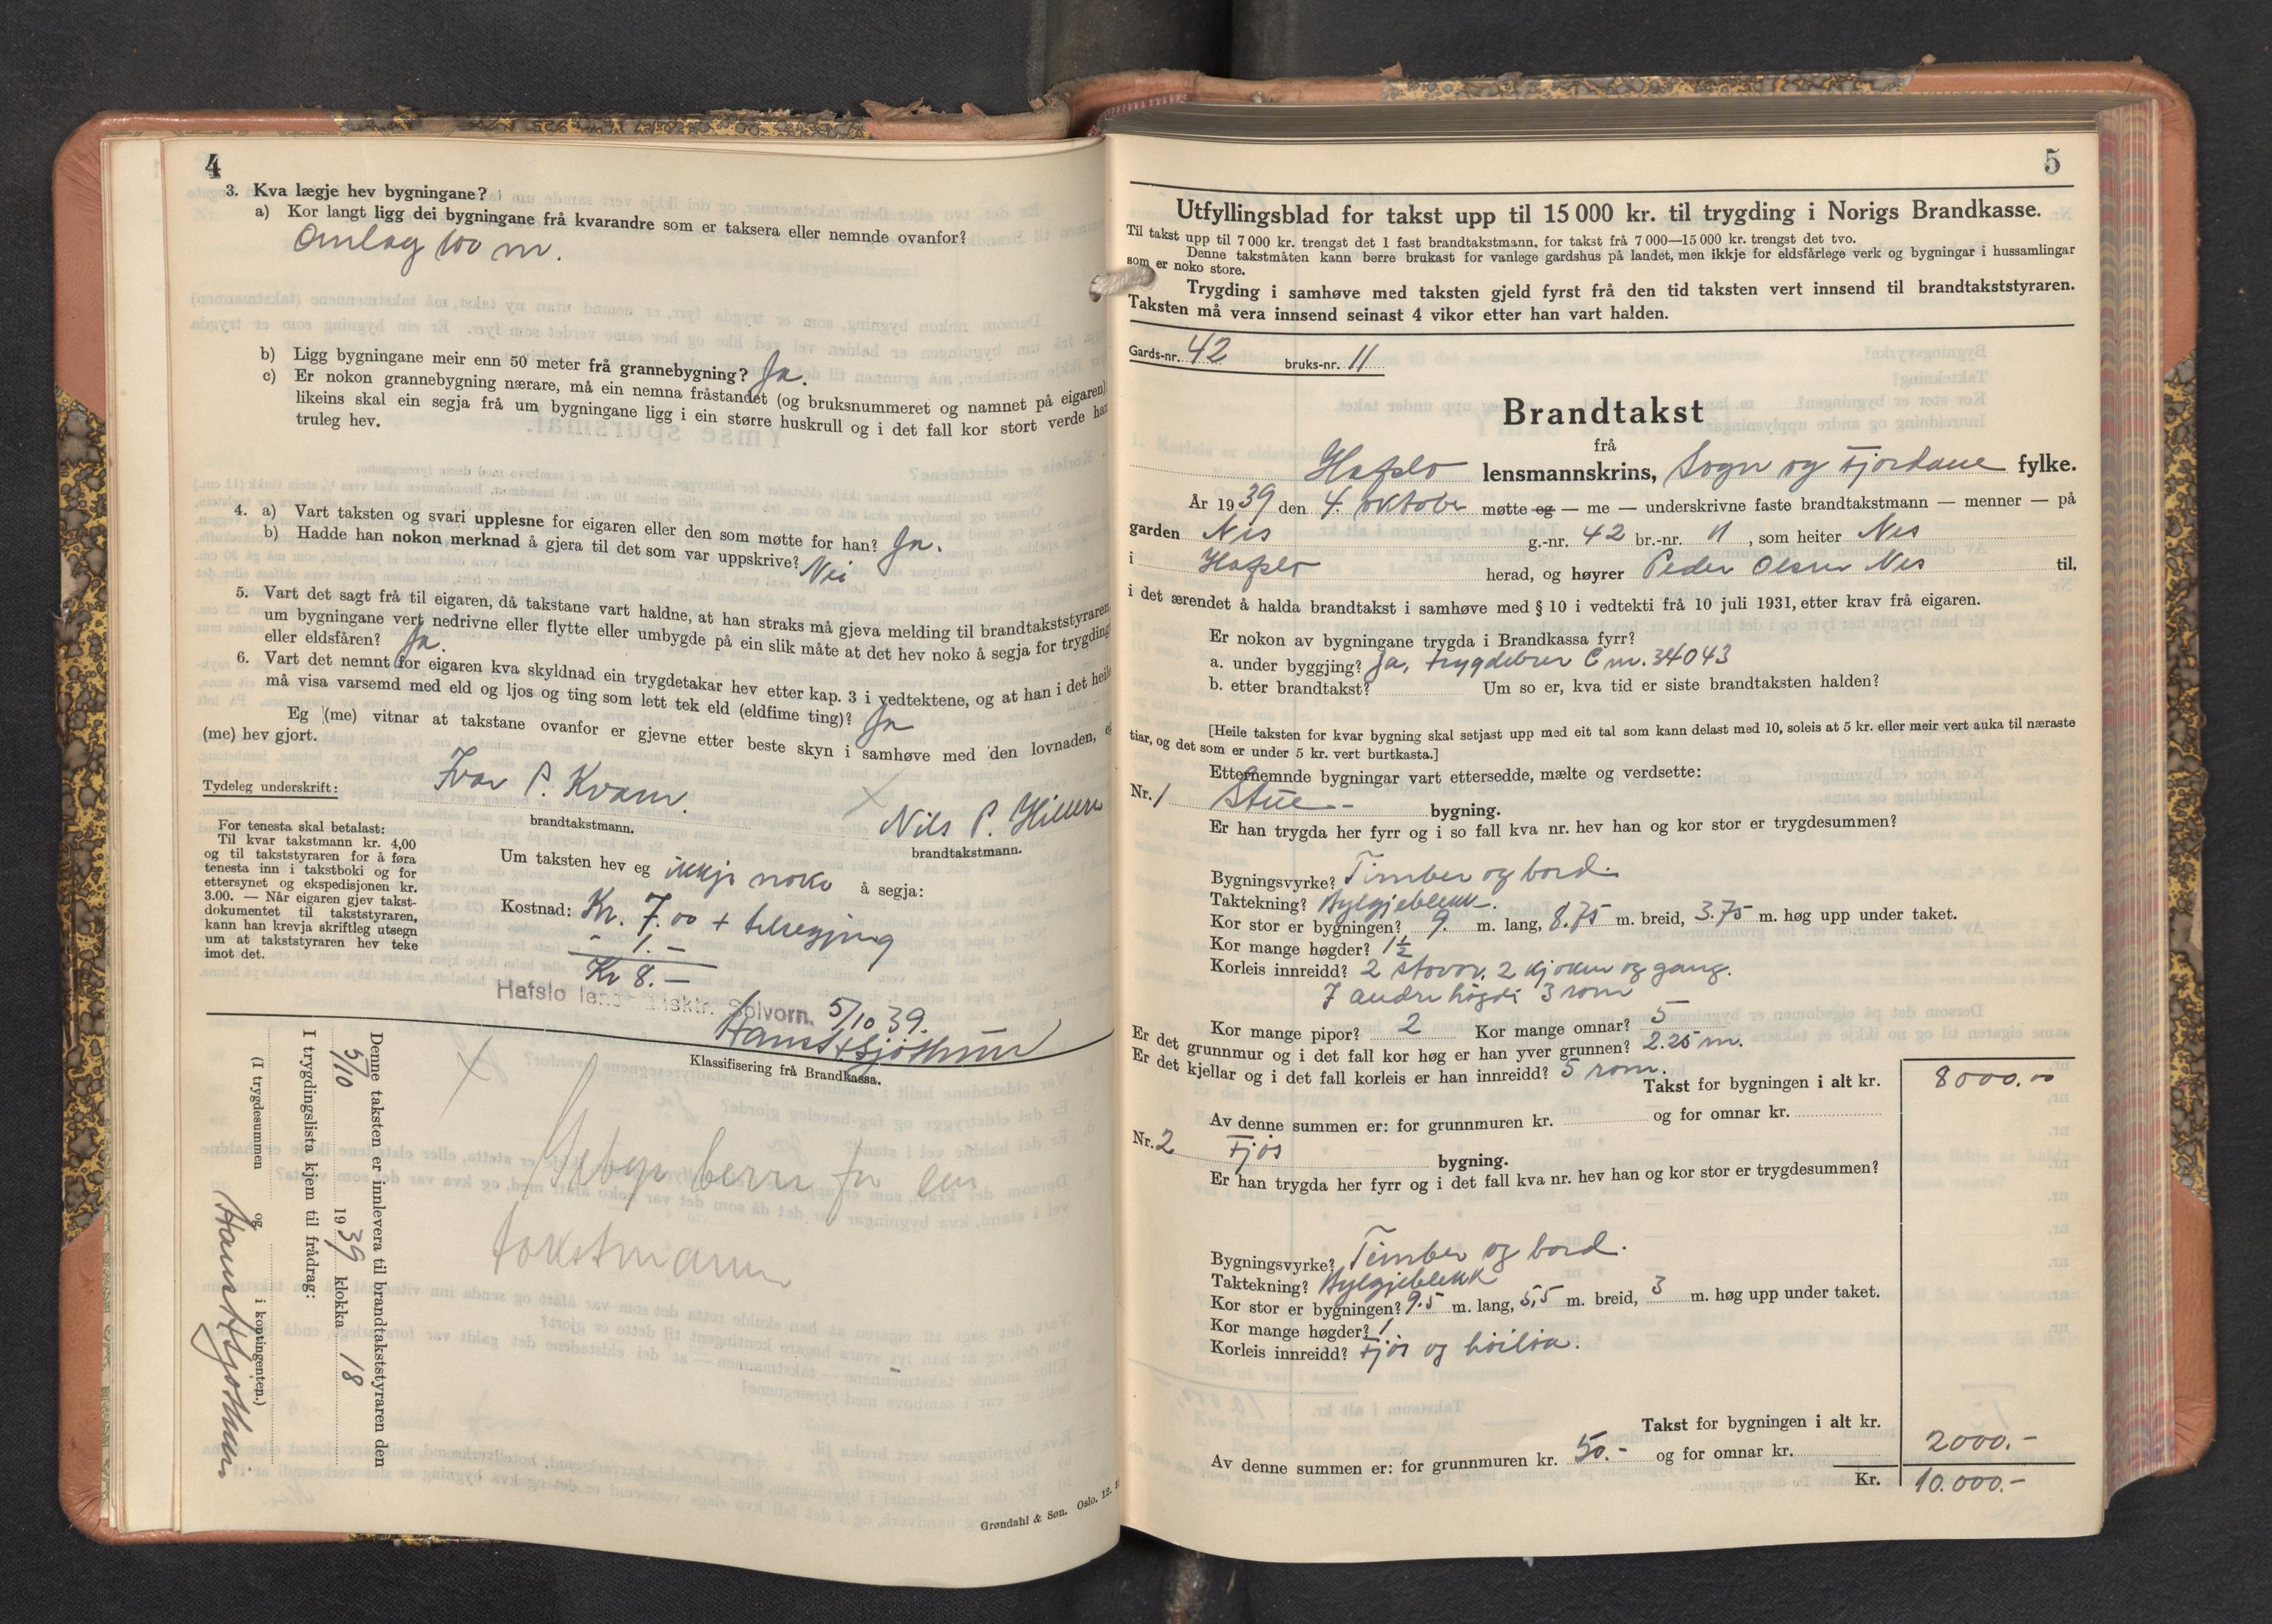 4
3. Kva lægje hev bygningane?
a) Kor langt ligg dei bygningane frå kvarandre som er taksera eller nemnde ovanfor?
Omlag 100 m.
b) Ligg bygningane meir enn 50 meter frå grannebygning? Ja.
c) Er nokon grannebygning nærare, må ein nemna fråstandet (og bruksnummeret og namnet på eigaren);
likeins skal ein segja frå um bygningane ligg i ein større huskrull og i det fall kor stort verde han
truleg hev.
4. a) Vart taksten og svari upplesne for eigaren eller den som møtte for han? Ja.
b) Hadde han nokon merknad å gjera til det som var uppskrive? Nei
5. Vart det sagt frå til eigaren, då takstane vart haldne, at han straks må gjeva melding til brandtakststyraren
um bygningane vert nedrivne eller flytte eller umbygde på ein slik måte at det hev noko å segja for trygding
eller eldsfåren? Ja.
6. Vart det nemnt for eigaren kva skyldnad ein trygdetakar hev etter kap. 3 i vedtektene, og at han i det heile
må visa varsemd med eld og ljos og ting som lett tek eld (eldfime ting)? Ja
Eg (me) vitnar at takstane ovanfor er gjevne etter beste skyn i samhøve med den lovnaden, eg
(me) hev gjort.
Tydeleg underskrift:
Ivar P. Kvam.
brandtakstmann.
Nils P. Hillern
brandtakstmann.
For tenesta skal betalast:
Til kvar takstmann kr. 4,00
og til takststyraren for å føra
tenesta inn i takstboki og for
ettersynet og ekspedisjonen kr.
3.00. — Når eigaren gjev takst-
dokumentet til takststyraren,
kann han krevja skriftleg utsegn
um at takststyraren hev teke
imot det.
Um taksten hev eg ikkje noko å segja:
Kostnad: Kr. 7.00 + tilsegjing
- 1.-
Kr 8.-
Hafslo lensmannsktr. Solvorn. 5/10 39.
Hans Hjøthun
Klassifisering frå Brandkassa.
Gebyr berre for ein
takstmann
Denne taksten er innlevera til brandtakststyraren den
5/10 1939 klokka 18
I trygdingslista kjem til frådrag:
(I trygdesummen og i kontingenten.)
Hans Hjøthun
Grøndahl & Søn. Oslo. 12.
5
Utfyllingsblad for takst upp til 15 000 kr. til trygding i Norigs Brandkasse.
Til takst upp til 7 000 kr. trengst det 1 fast brandtakstmann, for takst frå 7 000—15 000 kr. trengst det tvo.
Denne takstmåten kann berre brukast for vanlege gardshus på landet, men ikkje for eldsfårlege verk og bygningar i hussamlingar
som er noko store.
Trygding i samhøve med taksten gjeld fyrst frå den tid taksten vert innsend til brandtakststyraren.
Taksten må vera innsend seinast 4 vikor etter han vart halden.
Gards-nr. 42 bruks-nr. 11
Brandtakst
frå
Hafslo lensmannskrins, Sogn og Fjordane fylke.
År 1939 den 4. oktober møtte eg — me — underskrivne faste brandtakstmann — menner — på
garden Nes g.-nr. 42 br.-nr. 11, som heiter Nes
i Hafslo herad, og høyrer Peder Olsen Nes til,
i det ærendet å halda brandtakst i samhøve med § 10 i vedtekti frå 10 juli 1931, etter krav frå eigaren.
Er nokon av bygningane trygda i Brandkassa fyrr?
a. under byggjing? Ja, trygdebrev C nr. 34043
b. etter brandtakst? Um so er, kva tid er siste brandtaksten halden?
[Heile taksten for kvar bygning skal setjast upp med eit tal som kann delast med 10, soleis at 5 kr. eller meir vert auka til næraste
tiar, og det som er under 5 kr. vert burtkasta.]
Etternemnde bygningar vart ettersedde, mælte og verdsette:
Nr. 1 Stue- bygning.
Er han trygda her fyrr og i so fall kva nr. hev han og kor stor er trygdesummen?
Bygningsvyrke? Timber og bord.
Taktekning? Bylgjeblekk.
Kor stor er bygningen? 9. m. lang, 8.75 m. breid, 3.75 m. høg upp under taket.
Kor mange høgder? 1½
Korleis innreidd? 2 stovor, 2 kjøken og gang.
I andre høgdi 3 rom
Kor mange pipor? 2 Kor mange omnar? 5
Er det grunnmur og i det fall kor høg er han yver grunnen? 2.25 m.
Er det kjellar og i det fall korleis er han innreidd? 5 rom.
Takst for bygningen i alt kr. 8000.00
Av denne summen er: for grunnmuren kr. og for omnar kr.
Nr. 2 Fjøs bygning.
Er han trygda her fyrr og i det fall kva nr. hev han og kor stor er trygdesummen?
Bygningsvyrke? Timber og bord.
Taktekning? Bylgjeblekk
Kor stor er bygningen? 9.5 m. lang, 5,5 m. breid, 3 m. høg upp under taket.
Kor mange høgder? 1.
Korleis innreidd? Fjøs og høiløa.
Takst for bygningen i alt kr. 2000.-
Av denne summen er: for grunnmuren kr. 50.- og for omnar kr.
Kr. 10.000.-